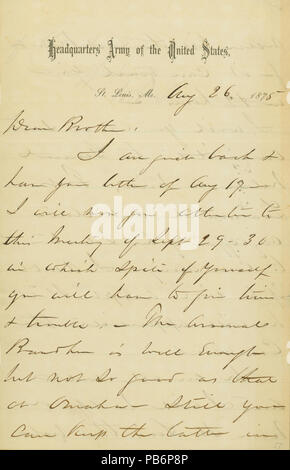 Headquarters Army of the United States.
St. Louis, Mo. Aug 26, 1875
Dear Brother.
I am just back &
have your letter of Aug 17.
I will now give attention to
this Meeting of Sept 29-30
in which spite of yourself
you will have to give time
& trouble. - The Arsenal
Band here is well enough
but not so good as that
at Omaha - Still you
can keep the latter in
alamy
Image ID: PB6P8P
www.alamy.com